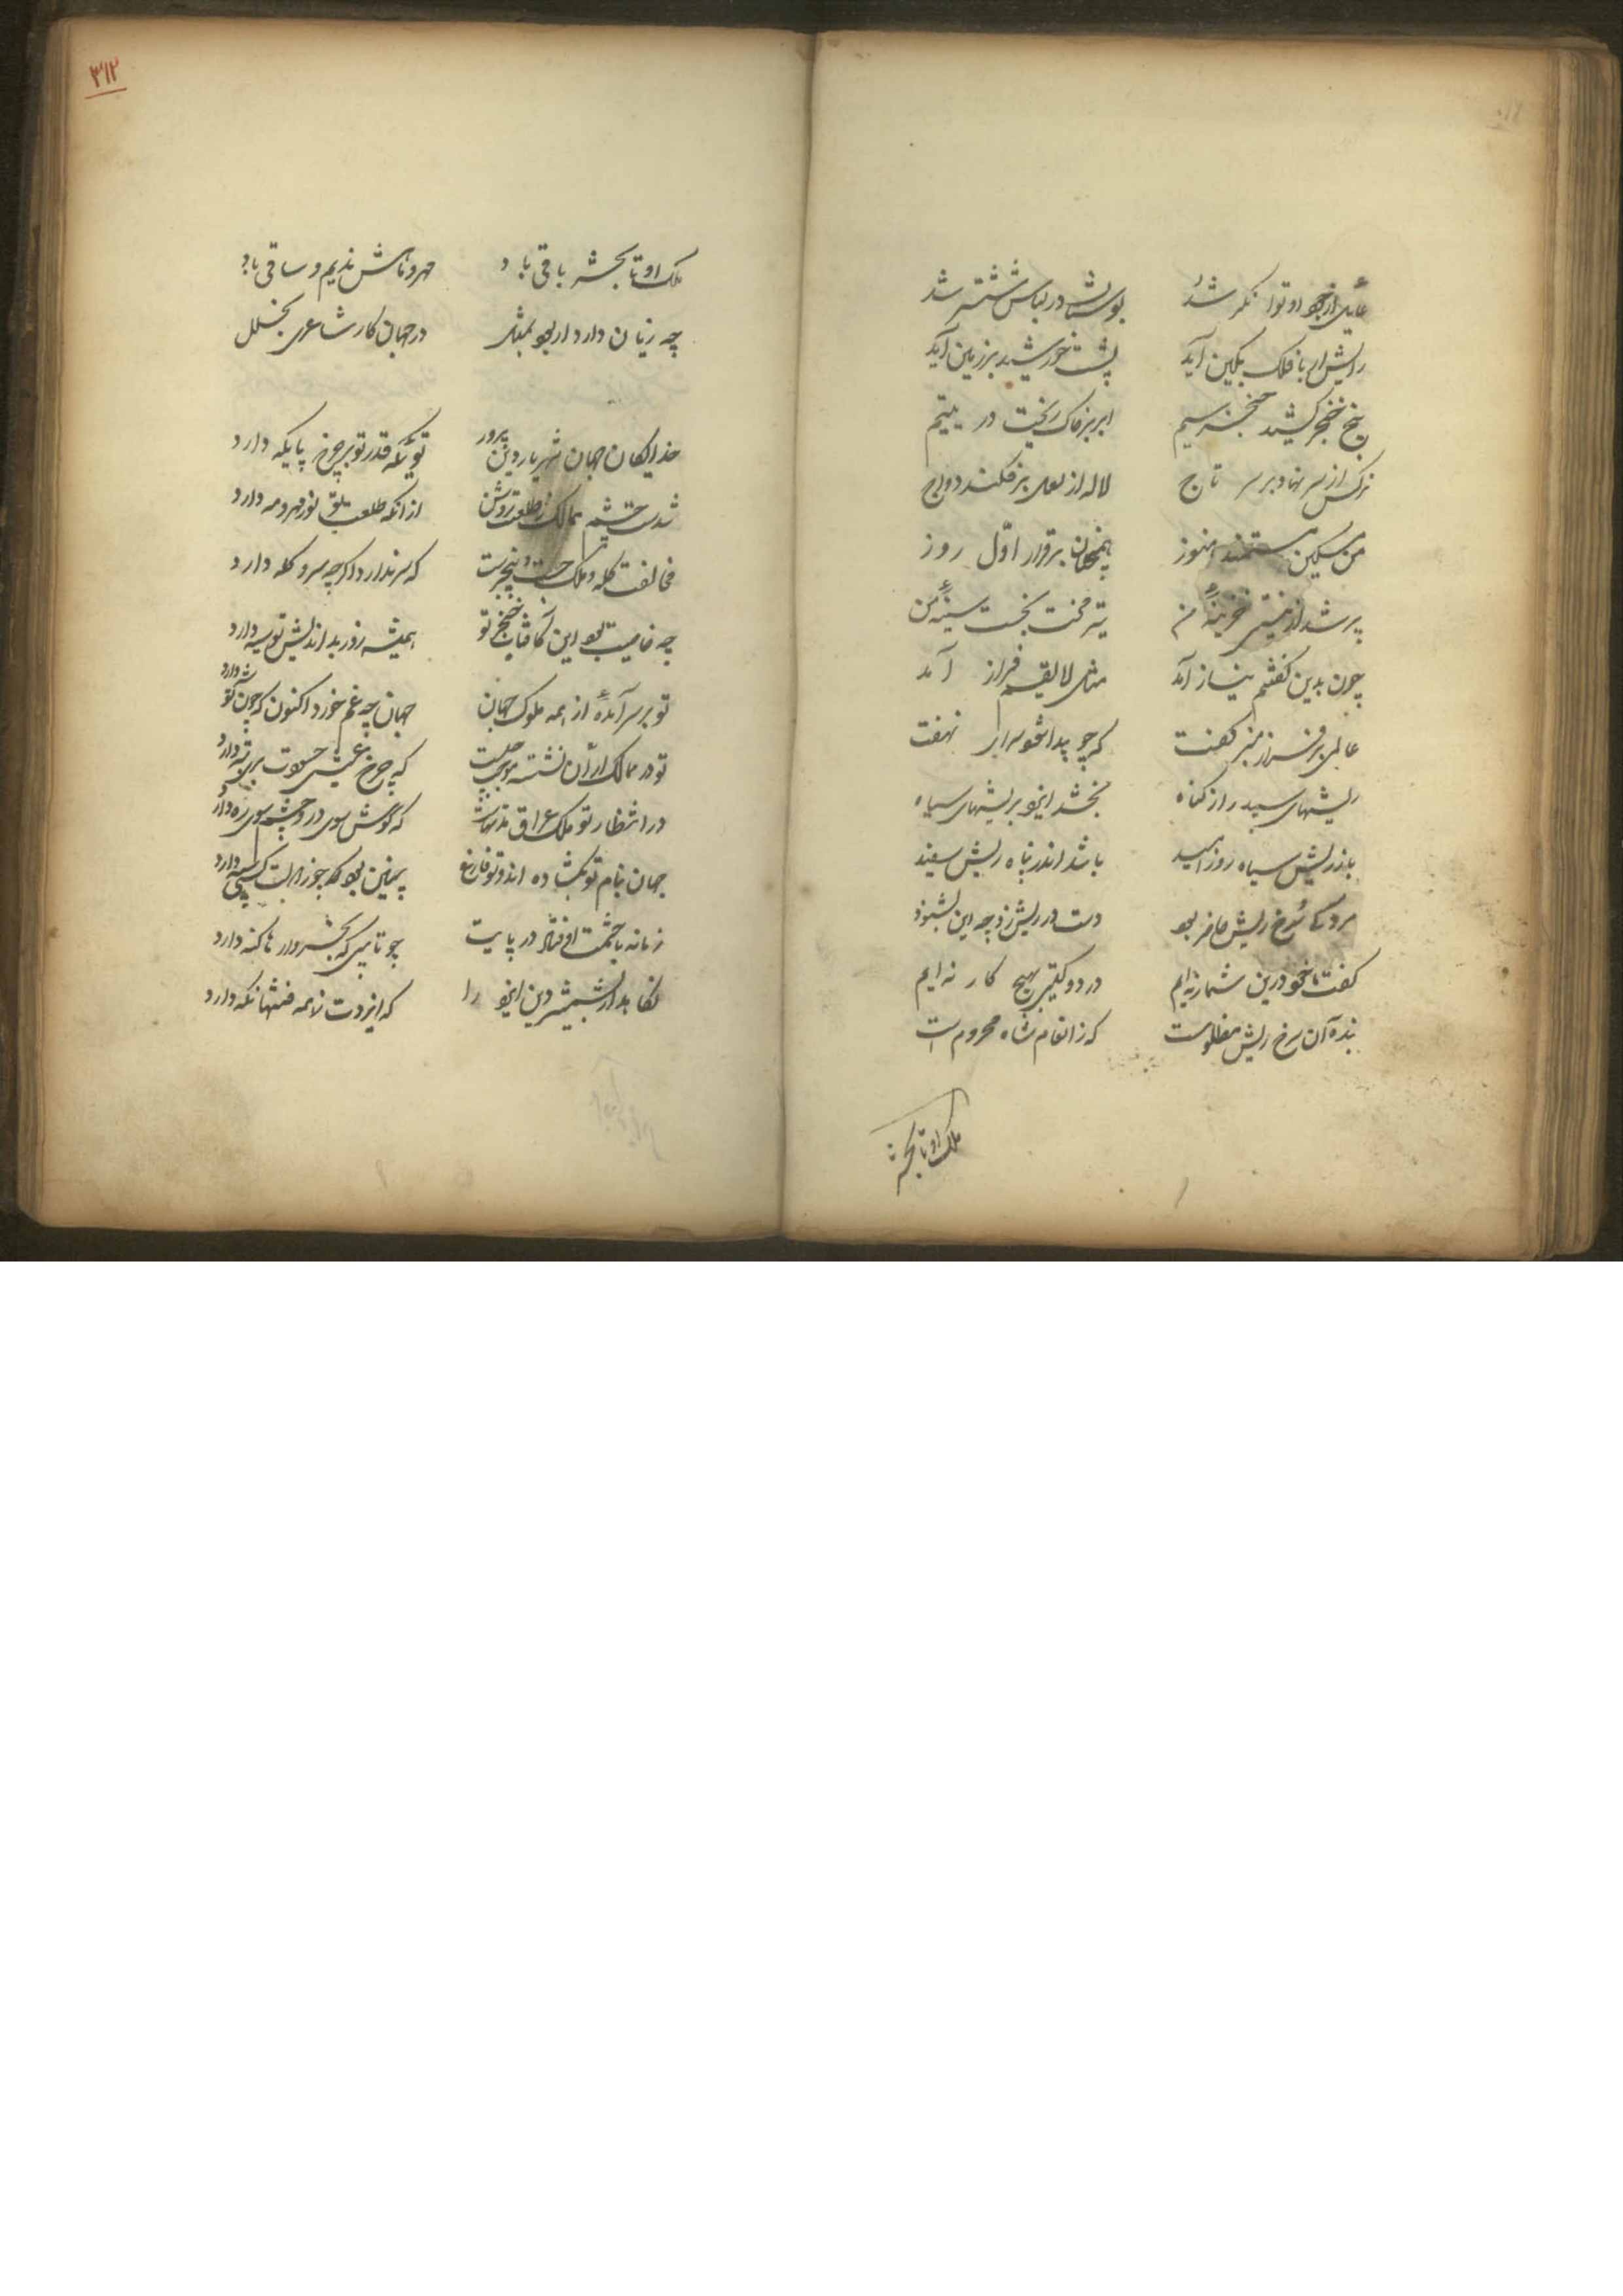 عالمی از جود او توانگر شد بوستان در لباس ششتر شد
رایش ار با فلک بکین آید پشت خورشید بر زمین آید
خنجر کشید خنجر سیم ابر بر خاک ریخت در یتیم
نرگس از سر نهاد بر سر تاج لاله از لعل برفکند دواج
من مسکین مستمند هنوز همچنان بر قرار اول روز
پر شد از نیستی خزینه من تیر محنت بخست سینه من
چون بدین گفتم نیاز آمد مثلی لایقم فراز آمد
عالمی بر فراز منبر گفت که چو پیدا شود سرای نهفت
ریشهای سپید را از گناه بخشد ایزد بریشهای سیاه
باز ریش سیاه روز امید باشد اندر پناه ریش سفید
مردکی سرخ ریش حاضر بود دست در ریش زد چو این بشنود
گفت ما خود درین شمار نه‌ایم در دو گیتی بهیچ کار نه‌ایم
بنده آن سرخ ریش مظلومست که ز انعام شاه محروم است
ملک او تا بحشر
۳۱۲
ملک او تا بحشر باقی باد مهر و ماهش ندیم و ساقی باد
چه زیان دارد ار بود بمثل در جهان کار شاعری بخلل
خدایگان جهان شهریار دین پرور توئی که قدر تو بر چرخ پایگه دارد
شدست چشم ممالک ز طلعتت روشن از آنکه طلعت تو نور مهر و مه دارد
مخالفت کله و ملک جست و بیخبرست که سر ندارد اگرچه سر و کله دارد
چه خاصیت بود این کافتاب خنجر تو همیشه روز بداندیش تو سیه دارد
تو بر سر آمدهٔ از همه ملوک جهان جهان چه غم خورد اکنون که چون تو شه دارد
تو در ممالک اران نشسته موجب چیست که چرخ عیش حسودت تبه دارد
در انتظار تو ملک عراق مدتهاست که گوش سوی در و چشم سوی ره دارد
جهان بنام تو بگشاده‌اند و تو فارغ
زمانه با حشمت اوفتاد در پایت چو تایبی که بخروار ها گنه دارد
نگاهدار بشمشیر دین ایزد را که ایزدت ز همه فتنها نگه دارد